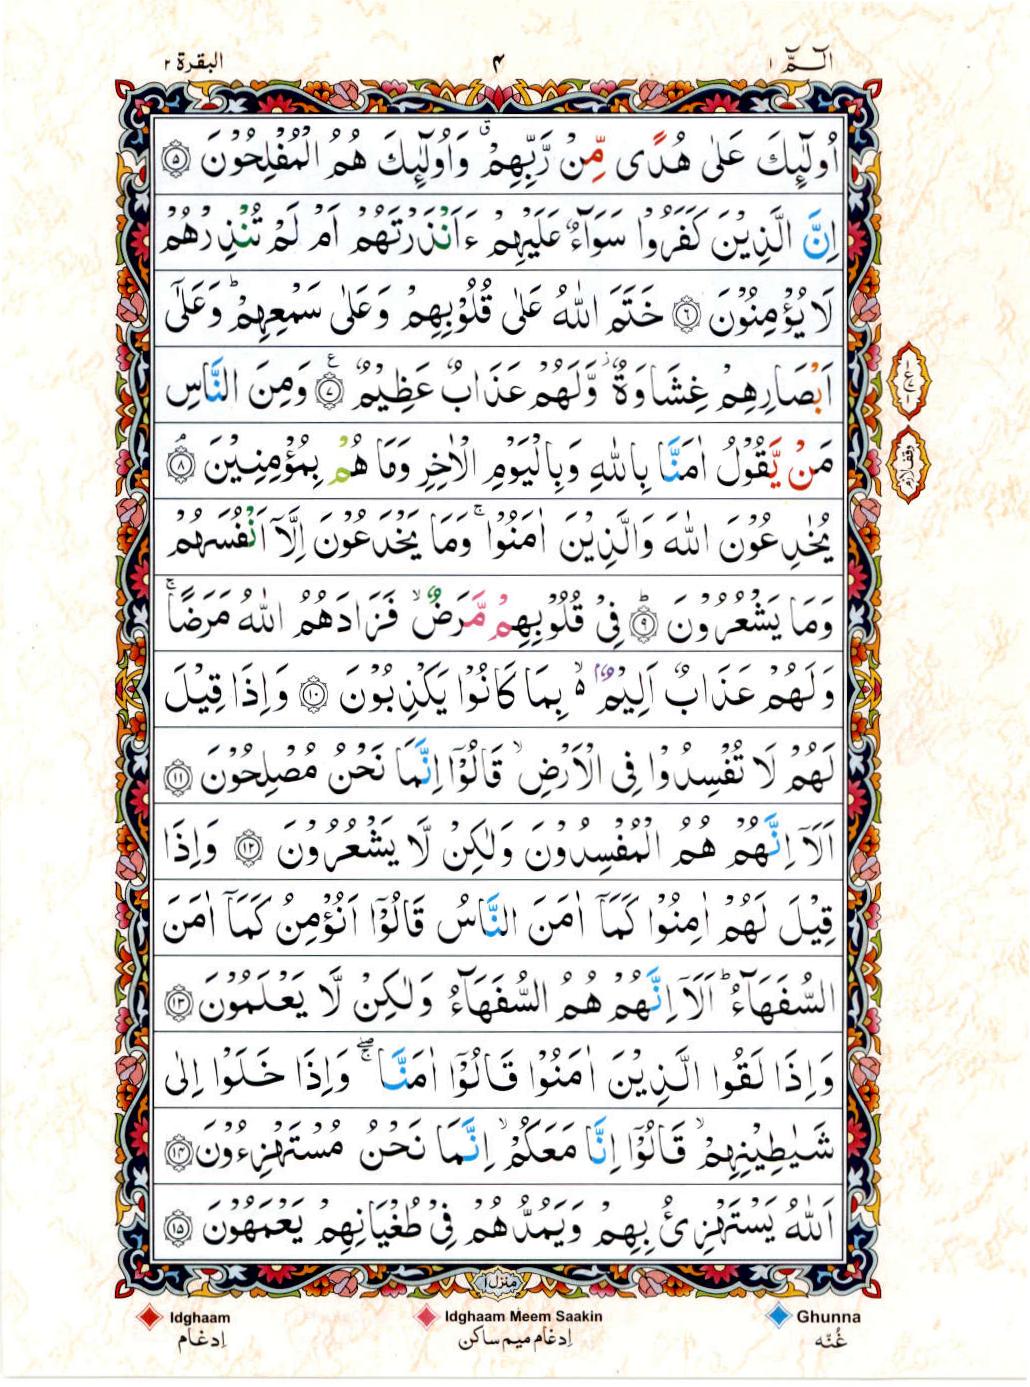 الٓمّٓ ١
۴
البقرة ٢
اُولٰٓئِكَ عَلٰى هُدًى مِّنْ رَّبِّهِمْ ۗ وَاُولٰٓئِكَ هُمُ الْمُفْلِحُوْنَ ۝٥
اِنَّ الَّذِيْنَ كَفَرُوْا سَوَآءٌ عَلَيْهِمْ ءَاَنْذَرْتَهُمْ اَمْ لَمْ تُنْذِرْهُمْ
لَا يُؤْمِنُوْنَ ۝٦ خَتَمَ اللّٰهُ عَلٰى قُلُوْبِهِمْ وَعَلٰى سَمْعِهِمْ ؕ وَعَلٰٓى
اَبْصَارِهِمْ غِشَاوَةٌ ؗ وَّلَهُمْ عَذَابٌ عَظِيْمٌ ۝٧ ع وَمِنَ النَّاسِ
مَنْ يَّقُوْلُ اٰمَنَّا بِاللّٰهِ وَبِالْيَوْمِ الْاٰخِرِ وَمَا هُمْ بِمُؤْمِنِيْنَ ۝٨ۘ
يُخٰدِعُوْنَ اللّٰهَ وَالَّذِيْنَ اٰمَنُوْا ۚ وَمَا يَخْدَعُوْنَ اِلَّآ اَنْفُسَهُمْ
وَمَا يَشْعُرُوْنَ ۝٩ؕ فِيْ قُلُوْبِهِمْ مَّرَضٌ ۙ فَزَادَهُمُ اللّٰهُ مَرَضًا ۚ
وَلَهُمْ عَذَابٌ اَلِيْمٌۢ ۙ۬ بِمَا كَانُوْا يَكْذِبُوْنَ ۝١٠ وَاِذَا قِيْلَ
لَهُمْ لَا تُفْسِدُوْا فِى الْاَرْضِ ۙ قَالُوْٓا اِنَّمَا نَحْنُ مُصْلِحُوْنَ ۝١١
اَلَآ اِنَّهُمْ هُمُ الْمُفْسِدُوْنَ وَلٰكِنْ لَّا يَشْعُرُوْنَ ۝١٢ وَاِذَا
قِيْلَ لَهُمْ اٰمِنُوْا كَمَآ اٰمَنَ النَّاسُ قَالُوْٓا اَنُؤْمِنُ كَمَآ اٰمَنَ
السُّفَهَآءُ ؕ اَلَآ اِنَّهُمْ هُمُ السُّفَهَآءُ وَلٰكِنْ لَّا يَعْلَمُوْنَ ۝١٣
وَاِذَا لَقُوا الَّذِيْنَ اٰمَنُوْا قَالُوْٓا اٰمَنَّا ۖۚ وَاِذَا خَلَوْا اِلٰى
شَيٰطِيْنِهِمْ ۙ قَالُوْٓا اِنَّا مَعَكُمْ ۙ اِنَّمَا نَحْنُ مُسْتَهْزِءُوْنَ ۝١٤
اَللّٰهُ يَسْتَهْزِئُ بِهِمْ وَيَمُدُّهُمْ فِيْ طُغْيَانِهِمْ يَعْمَهُوْنَ ۝١٥
وقف لازم
منزل ١
Idghaam
Idghaam Meem Saakin
Ghunna
اِدغام
اِدغام میم ساکن
غُنّه